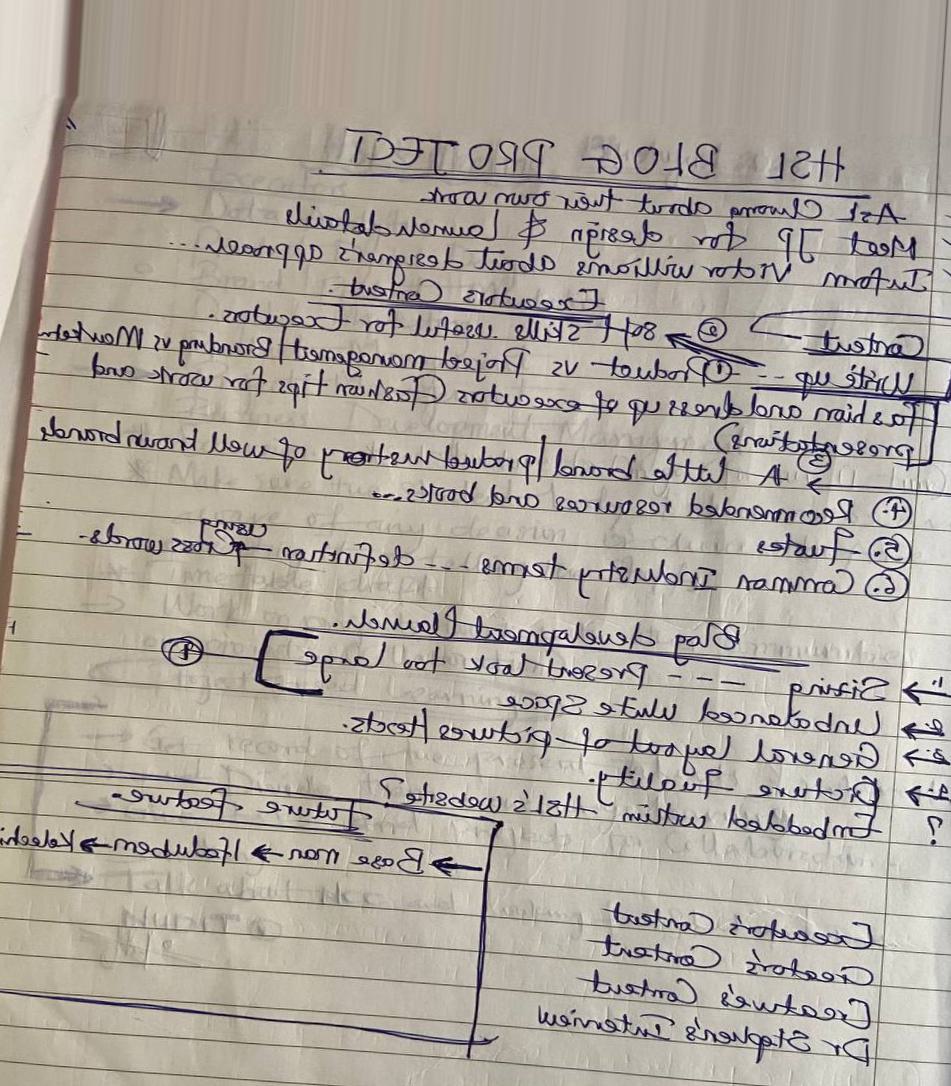 HSL BLOG PROJECT
Ask Chuoma about their own work
Meet Jp for design & launch details
Inform Victor Williams about designer's approach...
Executors Content.
Content → ② Soft skills useful for Executors.
Write up -- ① Product vs Project management/Branding vs Marketing
Fashion and dress up of executors (Fashion tips for work and
presentations)
③ A little brand/product history of well known brands
④. Recommended resources and books...
⑤. Quotes
⑥. Common Industry terms --- definition and Cross words.
Blog development / launch.
1. → Sizing --- present look too large
2. → Unbalanced white space
3. → General layout of pictures & texts.
4. → Picture quality.
? Embedded within HSL's website?
Future feature.
→ Base now → Hashnode →
Executors Content
Creators Content
Creative's Content
Dr Stephen's Interview